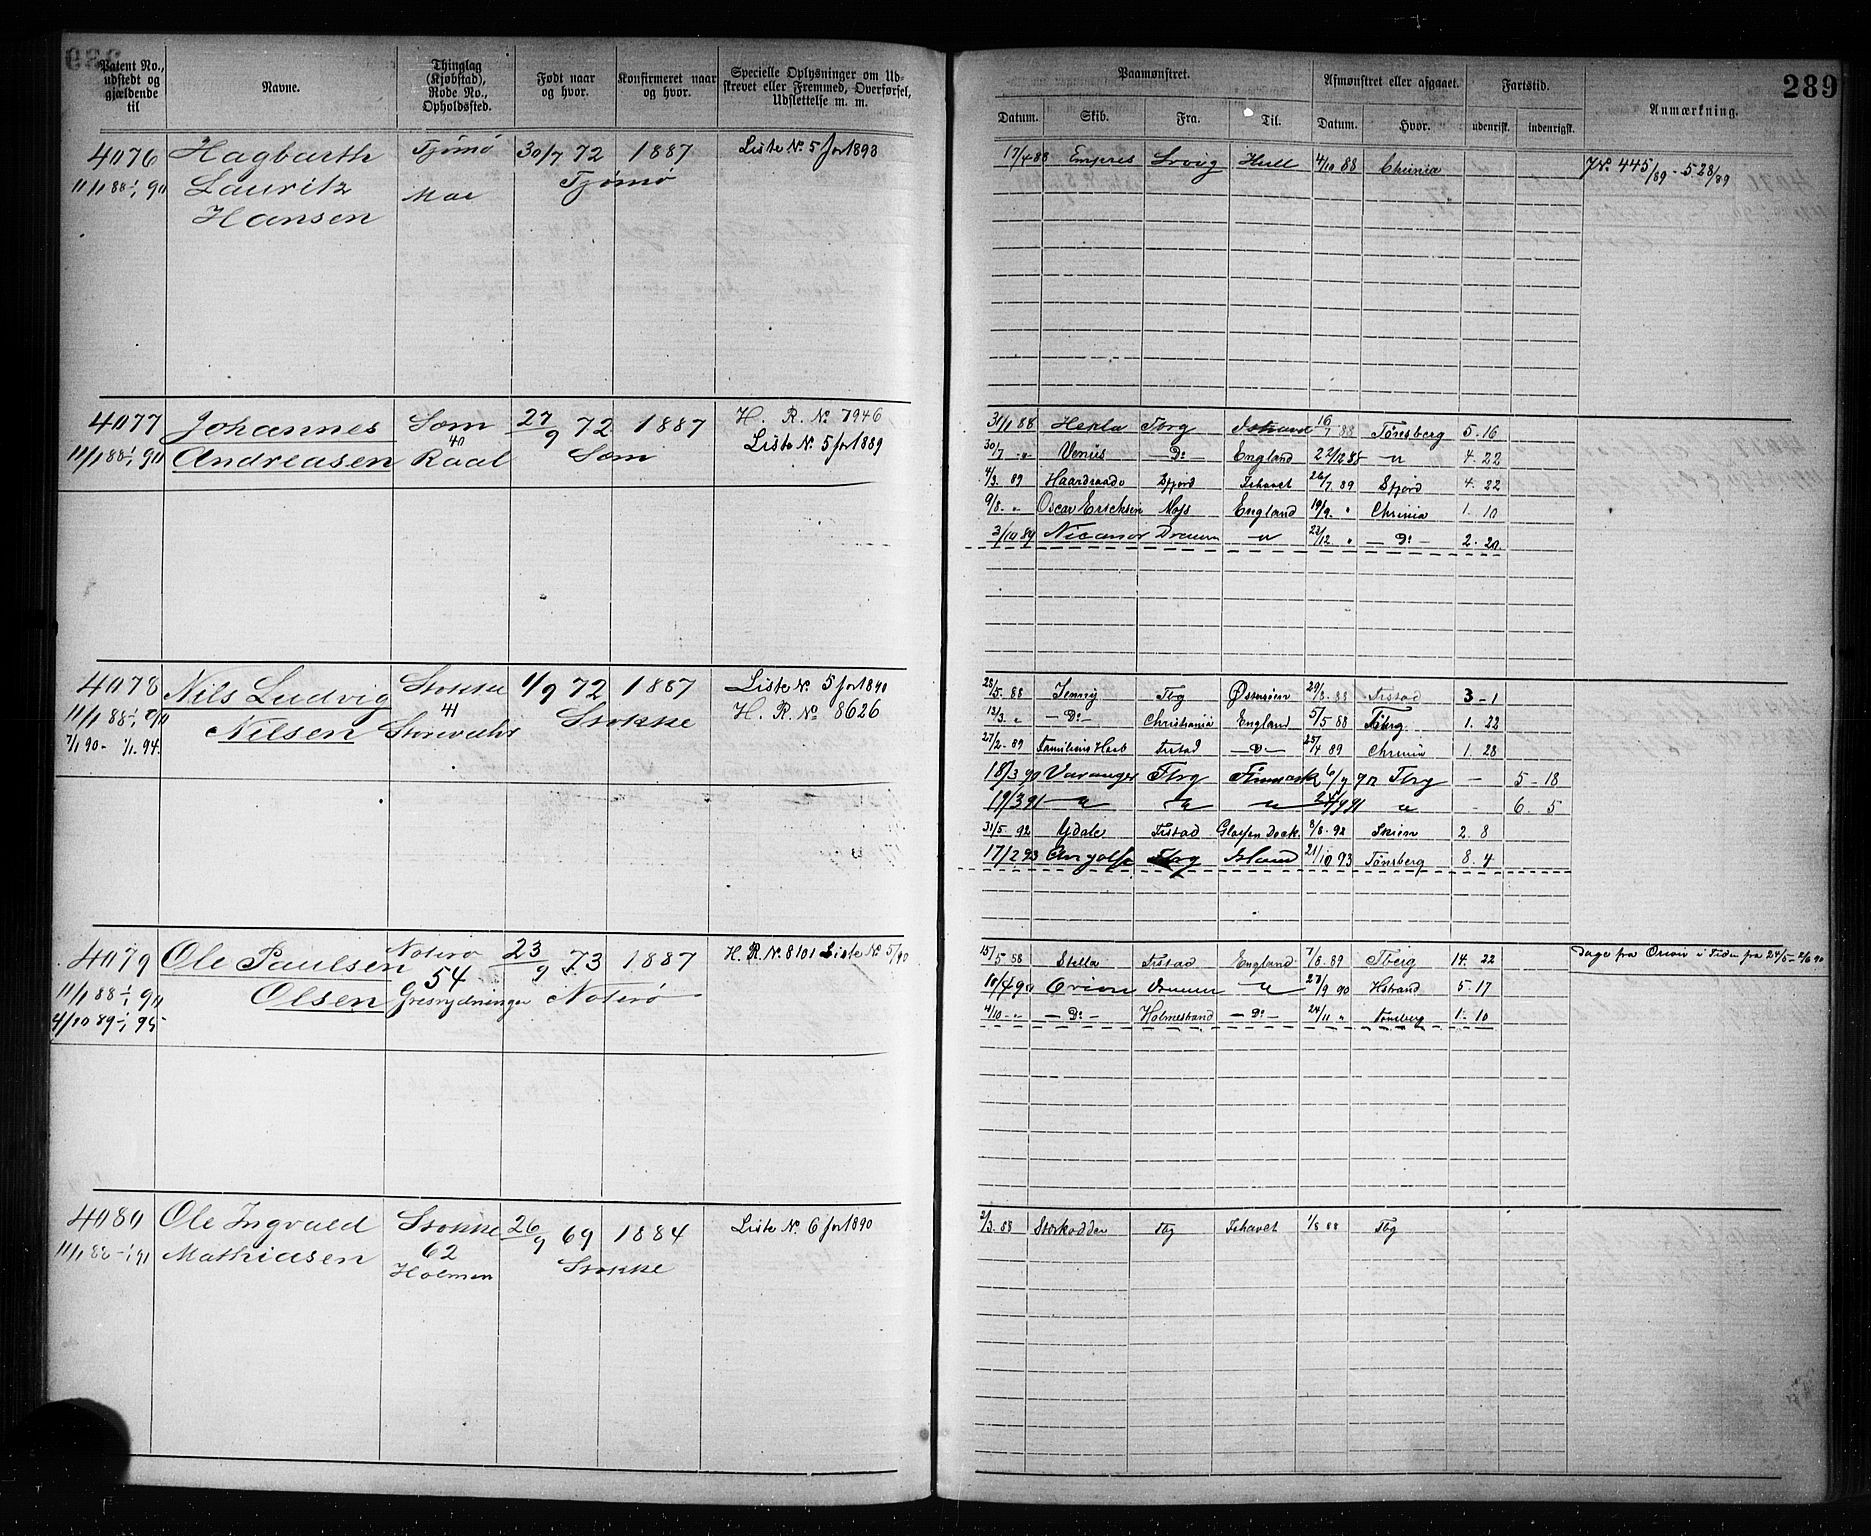 289
Patent No., udstedt og gjældende til
Navne.
Thinglag (Kjøbstad), Rode No., Opholdssted.
Født naar og hvor.
Konfirmeret naar og hvor.
Specielle Oplysninger om Udskrevet eller Fremmed, Overførsel, Udslettelse m. m.
Paamønstret.
Afmønstret eller afgaaet.
Fartstid.
Anmærkning.
Datum. Skib. Fra. Til. Datum. Hvor. udenrigs. indenrigs.
4076 Hagbarth Tjømø 30/7 72 1887 Liste No 5 for 1893
11/1 88 - 1/1 91 Lauritz Tjømø
Hansen
17/4 88 Empres Lrvig Hull 4/10 88 Chrinia J No. 445/89 - 528/89
4077 Johannes Søm 27/9 72 1887 H. R. No 7946
11/1 88 - 1/1 91 Andreasen 40 Raal Søm Liste No. 5 for 1889
31/1 88 Hekla Tbrg 16/7 88 Tønsberg 5 - 16
30/7 - " Venus - Do - England 22/12 88 - " 4 - 22
4/3 89 Haardraade Sfjord Ishavet 26/7 89 Sfjord 4 - 22
9/8 - " Oscar Ericksen Moss England 19/9 " Chrinia 1 - 10
3/10 89 Nicanor Drmmn - " 23/12 " - Do - 2 - 20
4078 Nils Ludvig Stokke 1/9 72 1887 Liste No. 5 for 1890
11/1 88 - 1/1 91 Nilsen 41 Stokke H. R. No 8626
7/1 90 - 1/1 94
28/5 88 Jenny Tbg Østersøen 29/8 88 Frstad 3 - 1
12/3 " - Do - Christiania England 5/5 88 Tbrg 1 - 22
27/2 - 89 Familiens Haab Frstad - Do - 25/4 89 Chrinia 1 - 28
18/3 90 Varanger Tbrg Finmark 6/9 90 Tbrg - 5 - 18
19/3 91 - " " " 24/9 91 " - 6 - 5
31/5 92 Ydale Frstad Glasson Dock 8/8 92 Skien 2 - 8
17/2 93 Tbrg Island 21/10 93 Tønsberg 8 - 4
4079 Ole Paulsen Nøterø 23/9 73 1887 H. R. No. 8101 Liste No 5/90
11/1 88 - 1/1 91 Olsen 54 Nøterø
4/10 89 - 1/1 95
15/5 88 Stella Frstad England 7/8 89 Tberg 14 - 22 Dage fra Orion i Tiden fra 24/5 - 2/6 90
10/4 90 Orion Drmmn - " 27/9 90 Hstrand 5 - 17
4/10 - " - Do - Holmestrand - Do - 24/11 " Tønsberg 1 - 10
4080 Ole Ingvald Stokke 26/9 69 1884 Liste No. 6 for 1890
11/1 88 - 1/1 91 Mathiasen 62 Stokke
Holmen
2/3 88 Stærkodder Tbg Ishavet 1/8 88 Tbg